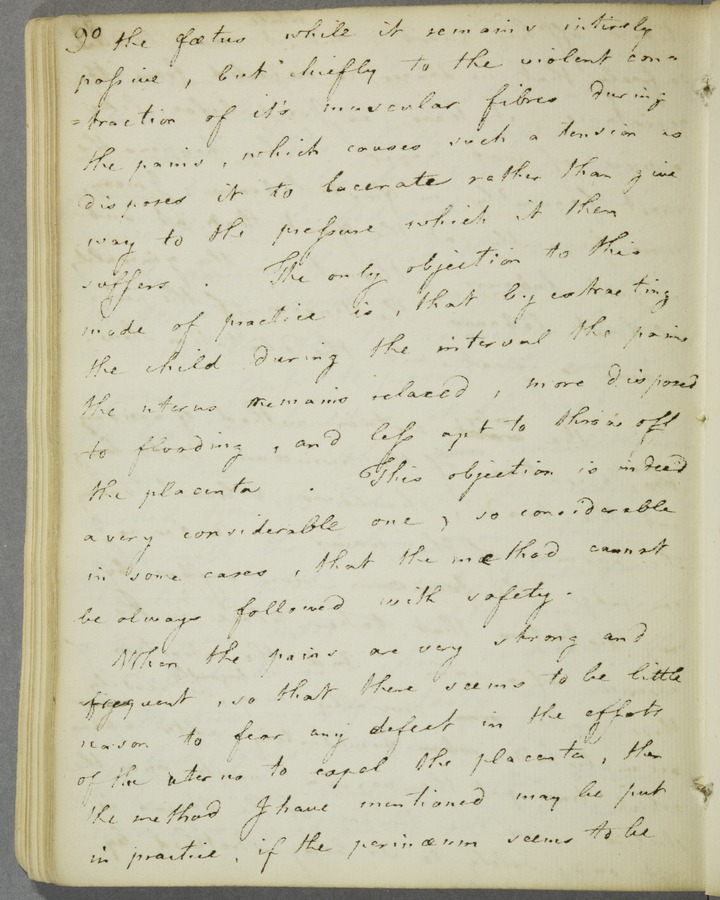 90 the fœtus while it remains intirely
passive, but chiefly to the violent con=
=traction of it's muscular fibres during
the pains, which causes such a tension as
disposes it to lacerate rather than give
way to the pressure which it then
suffers. The only objection to this
mode of practice is, that by extracting
the child during the interval the pains
the uterus remains relaxed, more disposed
to flooding, and less apt to throw off
the placenta. This objection is indeed
a very considerable one, so considerable
in some cases, that the method cannot
be always followed with safety.
When the pains are very strong and
frequent, so that there seems to be little
reason to fear any defect in the efforts
of the uterus to expel the placenta, then
the method I have mentioned may be put
in practice, if the perinæum seems to be